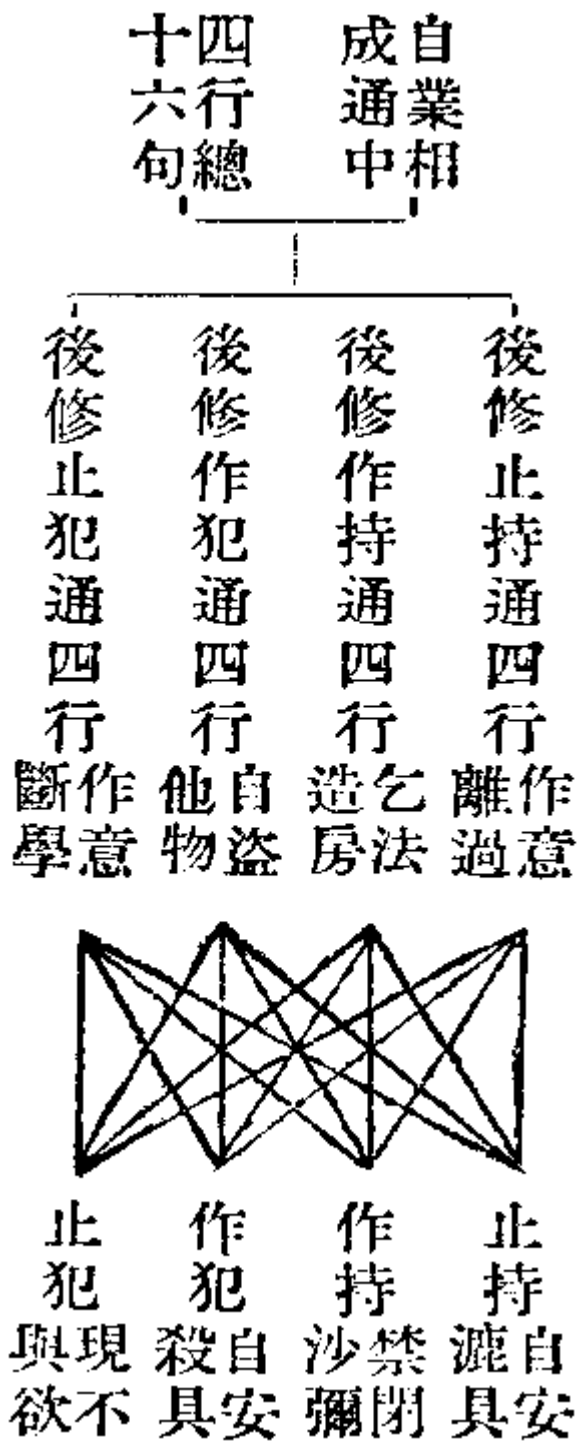 自業相
成通中
四行總
十六句
後修止持通四行
作意
離過
後修作持通四行
乞法
造房
後修作犯通四行
自盜
他物
後修止犯通四行
作意
斷學
止持
自安
漉具
作持
禁閉
沙彌
作犯
自安
殺具
止犯
現不
與欲